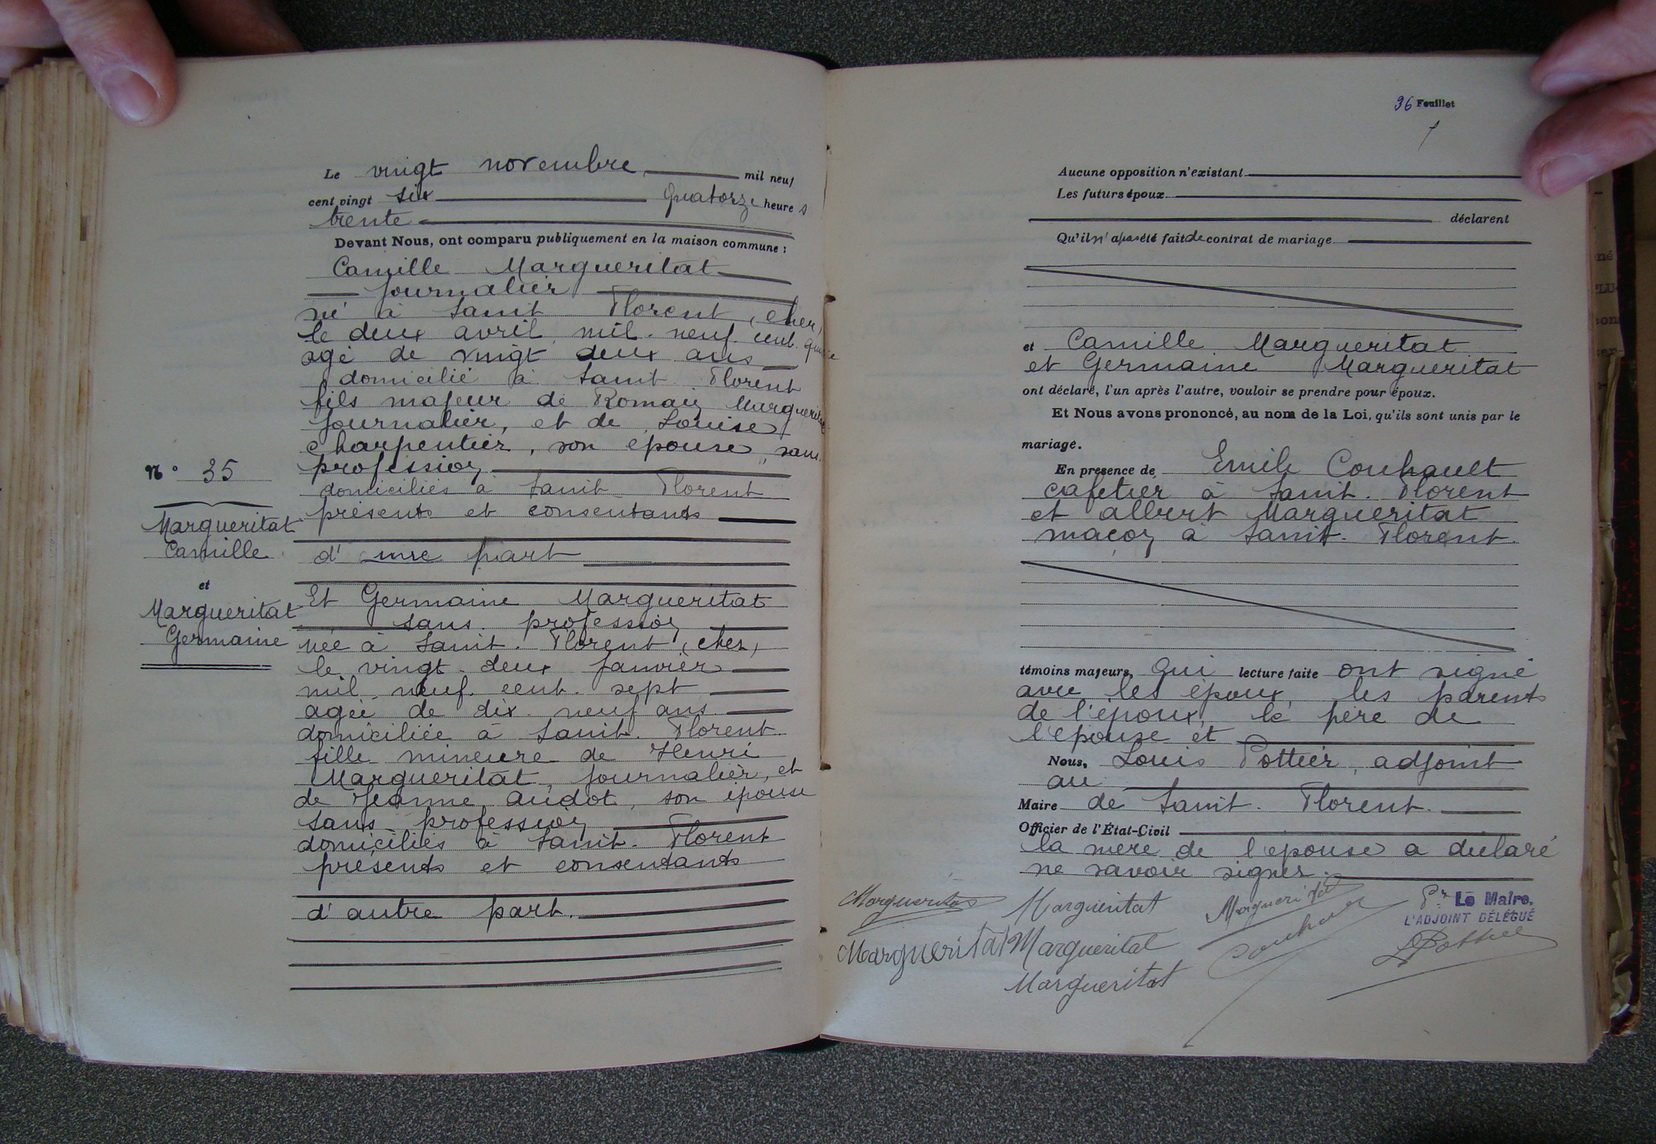 Le vingt novembre mil neuf
cent vingt six Quatorze heures
trente
Devant Nous, ont comparu publiquement en la maison commune :
Camille Margueritat
journalier
né à Saint Florent, (cher,
le deux avril mil neuf cent quatre
agé de vingt deux ans
domicilié à Saint Florent
fils majeur de Romain Margueritat
journalier, et de Louise
charpentier, son épouse, sans
profession
domiciliés à Saint Florent
présents et consentants
d'une part
N° 35
Margueritat
Camille
et
Margueritat
Germaine
Et Germaine Margueritat
sans profession
née à Saint. Florent, (cher,
le vingt deux janvier
mil neuf cent sept
agée de dix neuf ans
domiciliée à Saint. Florent
fille mineure de Henri
Margueritat, journalier, et
de Jeanne Audot, son épouse
sans profession
domiciliés à Saint. Florent
présents et consentants
d'autre part.
36 Feuillet
Aucune opposition n'existant
Les futurs époux
déclarent
Qu'il n'a pas été fait de contrat de mariage
et Camille Margueritat
et Germaine Margueritat
ont déclaré, l'un après l'autre, vouloir se prendre pour époux.
Et Nous avons prononcé, au nom de la Loi, qu'ils sont unis par le
mariage.
En présence de Emile Couhault
cafetier à Saint. Florent
et Albert Margueritat
maçon à Saint. Florent.
témoins majeurs, Qui lecture faite ont signé
avec les époux, les parents
de l'époux, le père de
l'épouse et
Nous, Louis Pottier, adjoint
au
Maire de Saint. Florent.
Officier de l'État-Civil
la mère de l'épouse a déclaré
ne savoir signer.
Margueritat Margueritat Margueritat Pr Le Maire,
L'ADJOINT DÉLÉGUÉ
Margueritat Margueritat LPottier
Margueritat